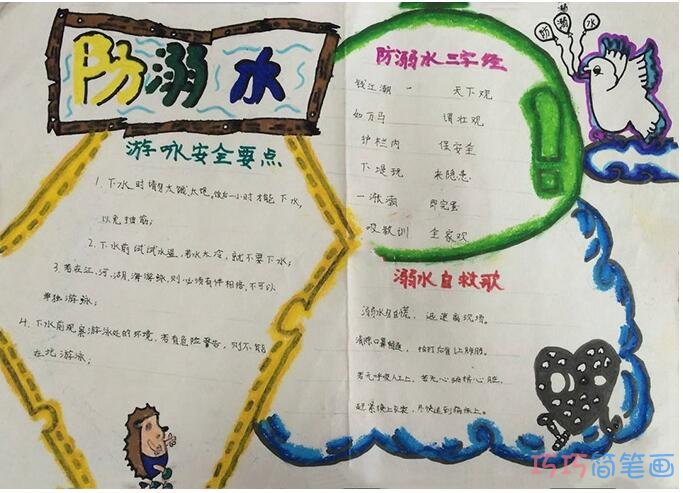 防溺水
防溺水
防溺水三字经
钱江潮一 天下观
如万马 谓壮观
护栏内 保安全
下堤玩 来隐患
一涨潮 即完蛋
吸教训 全家欢
游咏安全要点
1. 下水时请勿太饿、太饱。饭后一小时才能下水,
以免抽筋;
2. 下水前试试水温,若水太冷,就不要下水;
3. 若在江、河、湖、海游泳,则必须有伴相陪,不可以
单独游泳;
4. 下水前观察游泳处的环境,若有危险警告,则不能
在此游泳;
溺水自救歌
溺水自慌,迅速离现场。
清除口鼻 拍打后背
若无呼吸人工上,若无心跳 心脏,
赶紧换上衣裳,尽快送到病床上。
巧巧简笔画